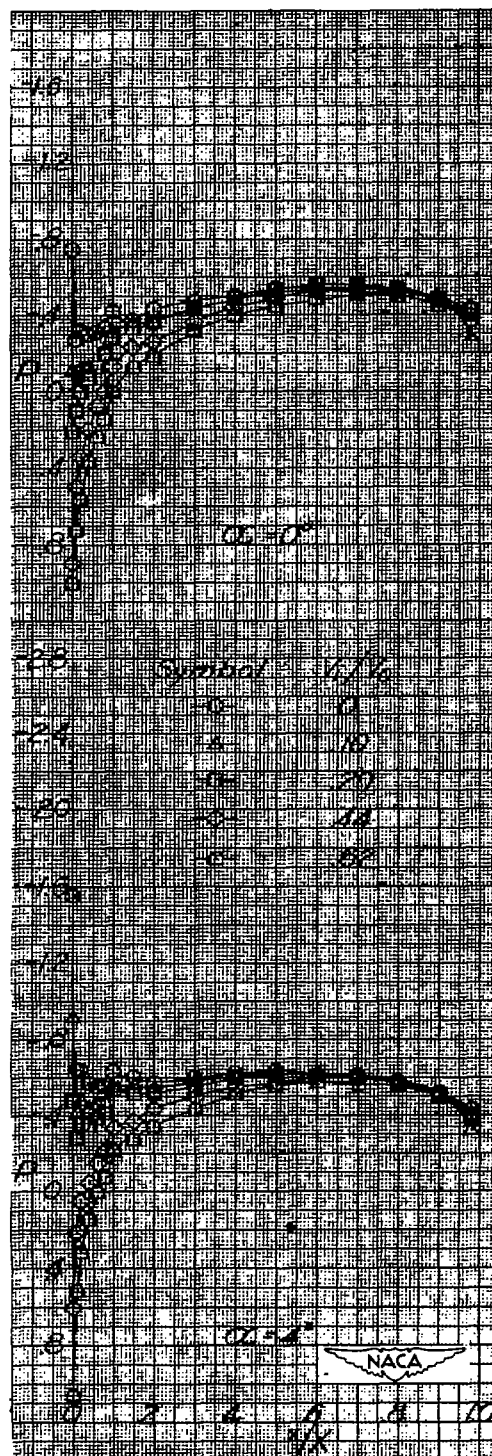 -1.6
-1.2
-.8
-.4
P
0
.4
.8
α = 0°
-2.8
Symbol V₁/V₀
0
-2.4
.20
-2.0
.44
.62
-1.6
-1.2
-.8
-.4
P
0
.4
.8
α = 4°
NACA
0 .2 .4 .6 .8 1.0
x/X